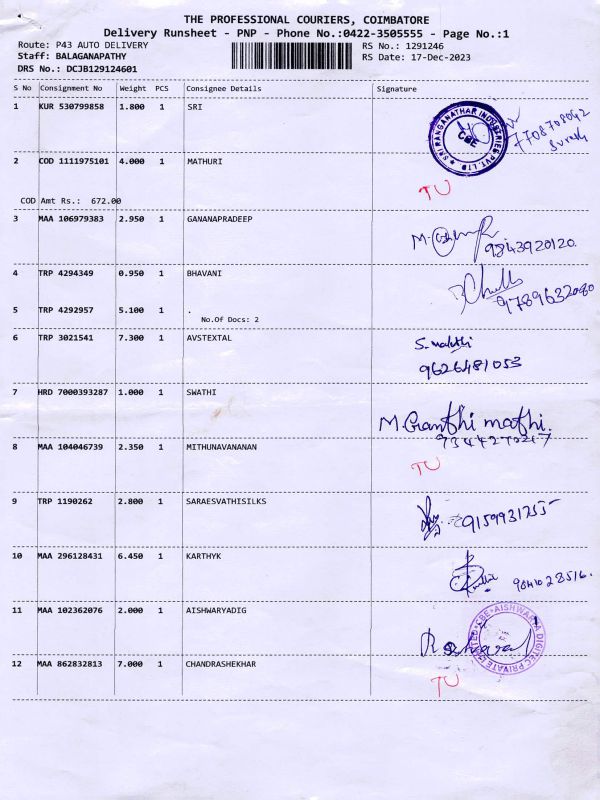 THE PROFESSIONAL COURIERS, COIMBATORE
Delivery Runsheet - PNP - Phone No.:0422-3505555 - Page No.:1
Route: P43 AUTO DELIVERY RS No.: 1291246
Staff: BALAGANAPATHY RS Date: 17-Dec-2023
DRS No.: DCJB129124601
S No Consignment No Weight PCS Consignee Details Signature
1 KUR 530799858 1.800 1 SRI
SRI RANGANATHAR INDUSTRIES PVT. LTD
CBE
7708708042
Suresh
2 COD 1111975101 4.000 1 MATHURI
TU
COD Amt Rs.: 672.00
3 MAA 106979383 2.950 1 GANANAPRADEEP
9843920120.
4 TRP 4294349 0.950 1 BHAVANI
9789632080
5 TRP 4292957 5.100 1 .
No.Of Docs: 2
6 TRP 3021541 7.300 1 AVSTEXTAL
S. malathi
9626481053
7 HRD 7000393287 1.000 1 SWATHI
M. Granthi mathi.
9344270217
8 MAA 104046739 2.350 1 MITHUNAVANANAN
TU
9 TRP 1190262 2.800 1 SARAESVATHISILKS
9159931755
10 MAA 296128431 6.450 1 KARTHYK
9841028516.
11 MAA 102362076 2.000 1 AISHWARYADIG
CBE AISHWARYA DIGITEC PRIVATE LIMITED
12 MAA 862832813 7.000 1 CHANDRASHEKHAR
TU